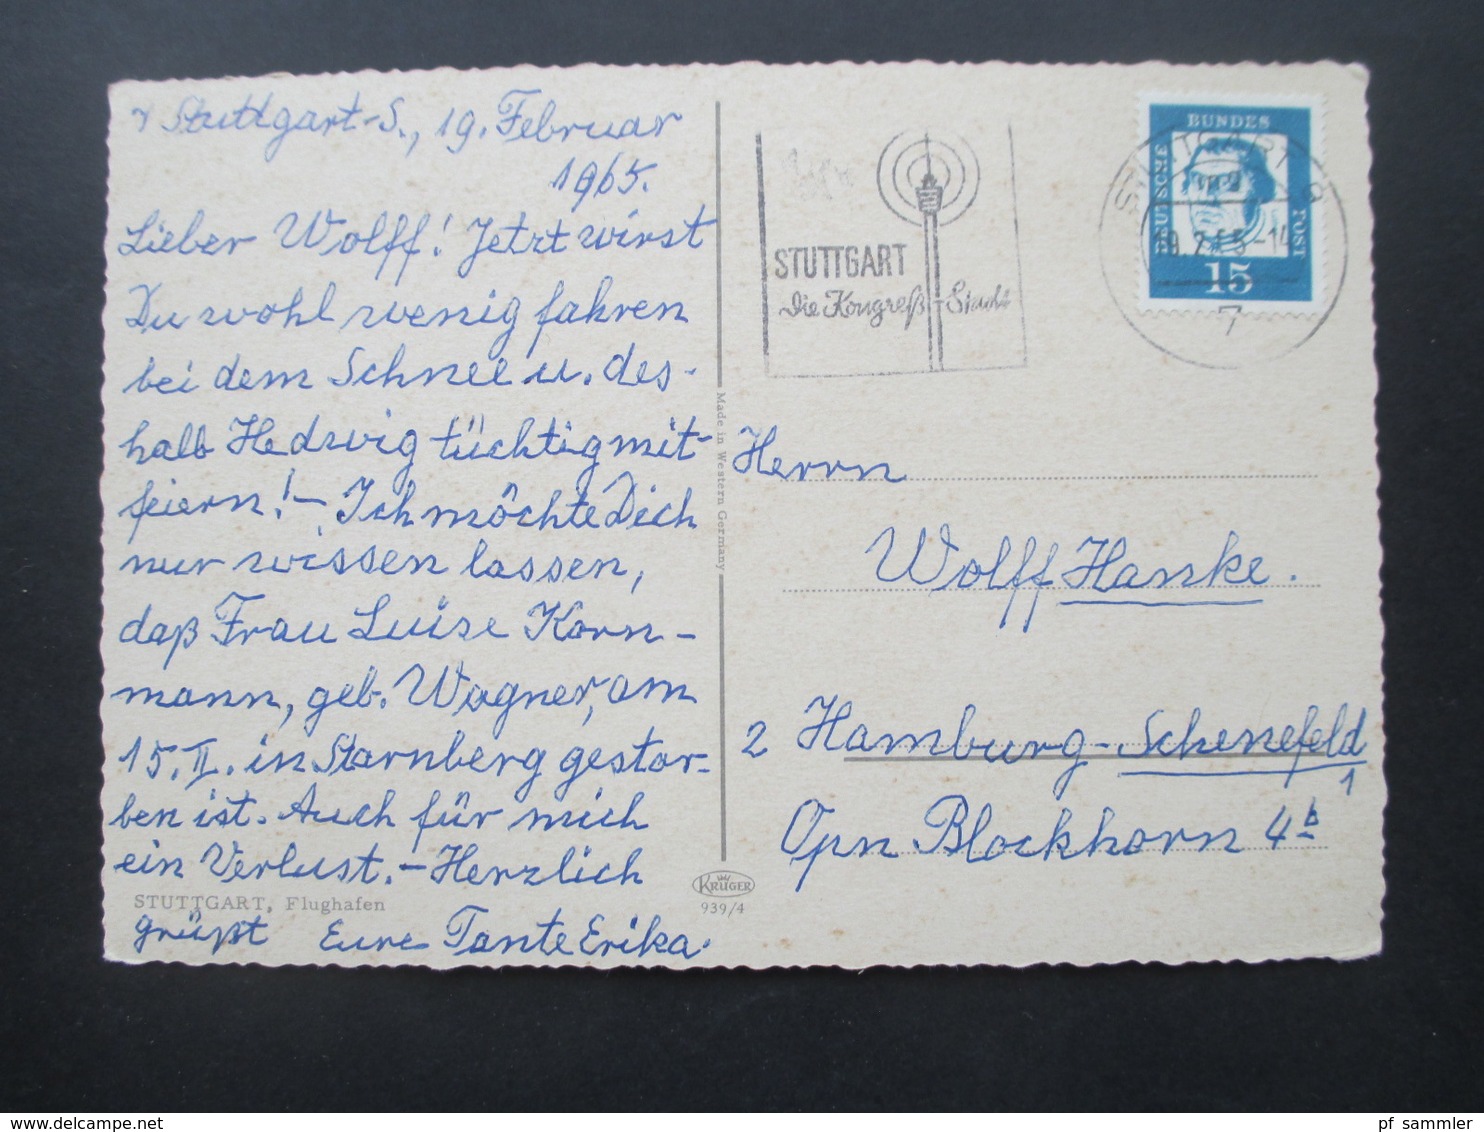 7 Stuttgart-S., 19. Februar
1965.
Lieber Wolff! Jetzt wirst
Du wohl wenig fahren
bei dem Schnee u. des-
halb Hedwig tüchtig mit-
feiern! – Ich möchte Dich
nur wissen lassen,
daß Frau Luise Korn-
mann, geb. Wagner, am
15. II. in Starnberg gestor-
ben ist. Auch für mich
ein Verlust. – Herzlich
grüßt Eure Tante Erika.
STUTTGART, Flughafen
Made in Western Germany
KRÜGER
939/4
STUTTGART
Die Kongreß-Stadt
DEUTSCHE
BUNDES
POST
15
STUTTGART
-14
7
Herrn
Wolff Hanke.
2 Hamburg-Schenefeld
1
Opn Blockhorn 4b
pf_sammler